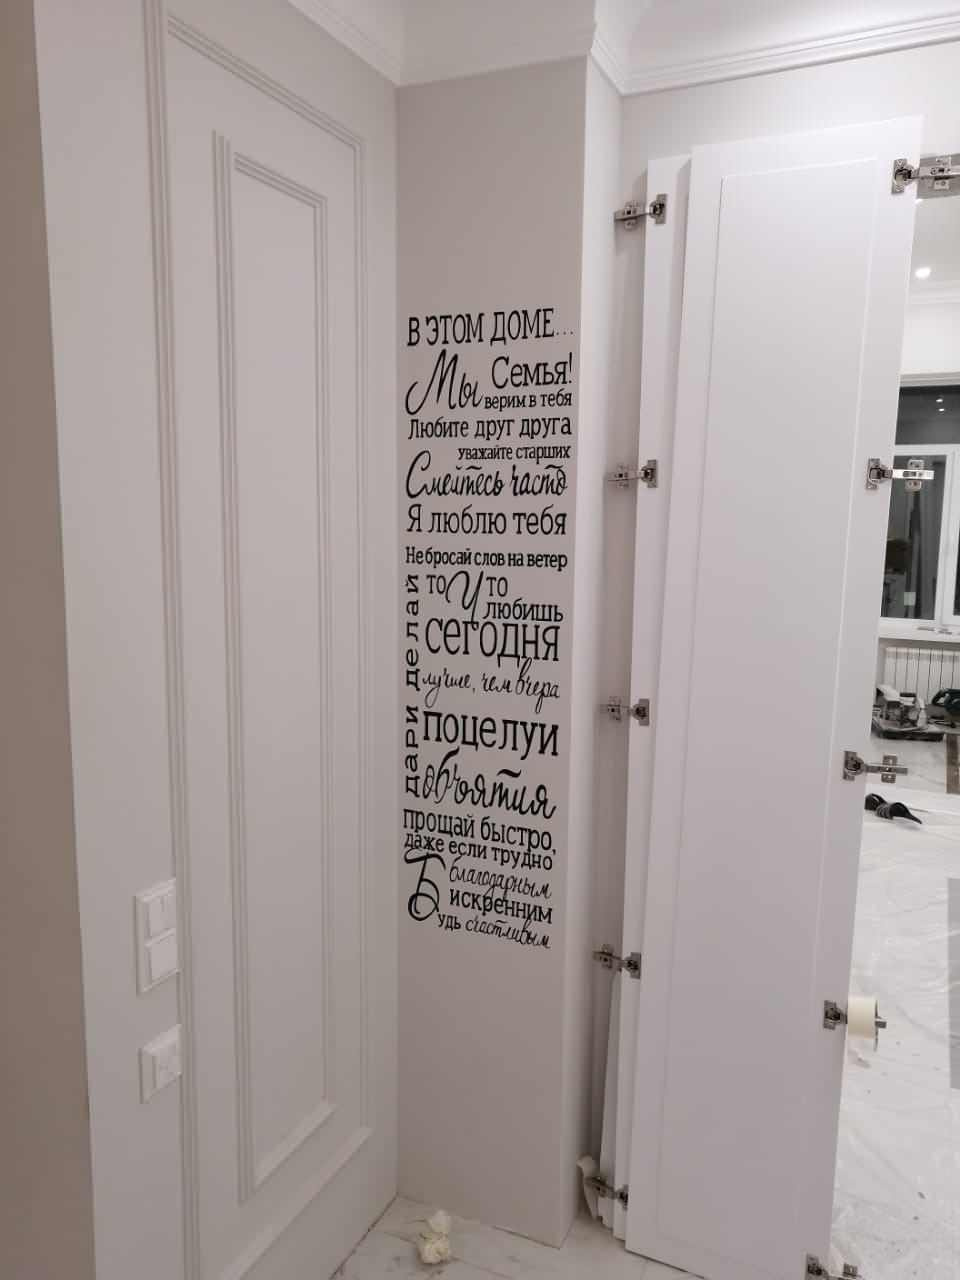 В ЭТОМ ДОМЕ...
Мы Семья!
верим в тебя
Любите друг друга
уважайте старших
Смейтесь часто
Я люблю тебя
Не бросай слов на ветер
делай то Что
любишь
сегодня
лучше, чем вчера
дари поцелуи
объятия
прощай быстро,
даже если трудно
Будь благодарным
искренним
счастливым